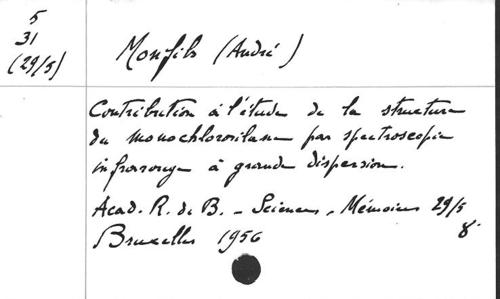 5
31
(29/5)
Monfils (André)
Contribution à l'étude de la structure
du monochlorosilane par spectroscopie
infrarouge à grande dispersion.
Acad. R. de B. - Sciences, Mémoires 29/5
Bruxelles 1956 8°